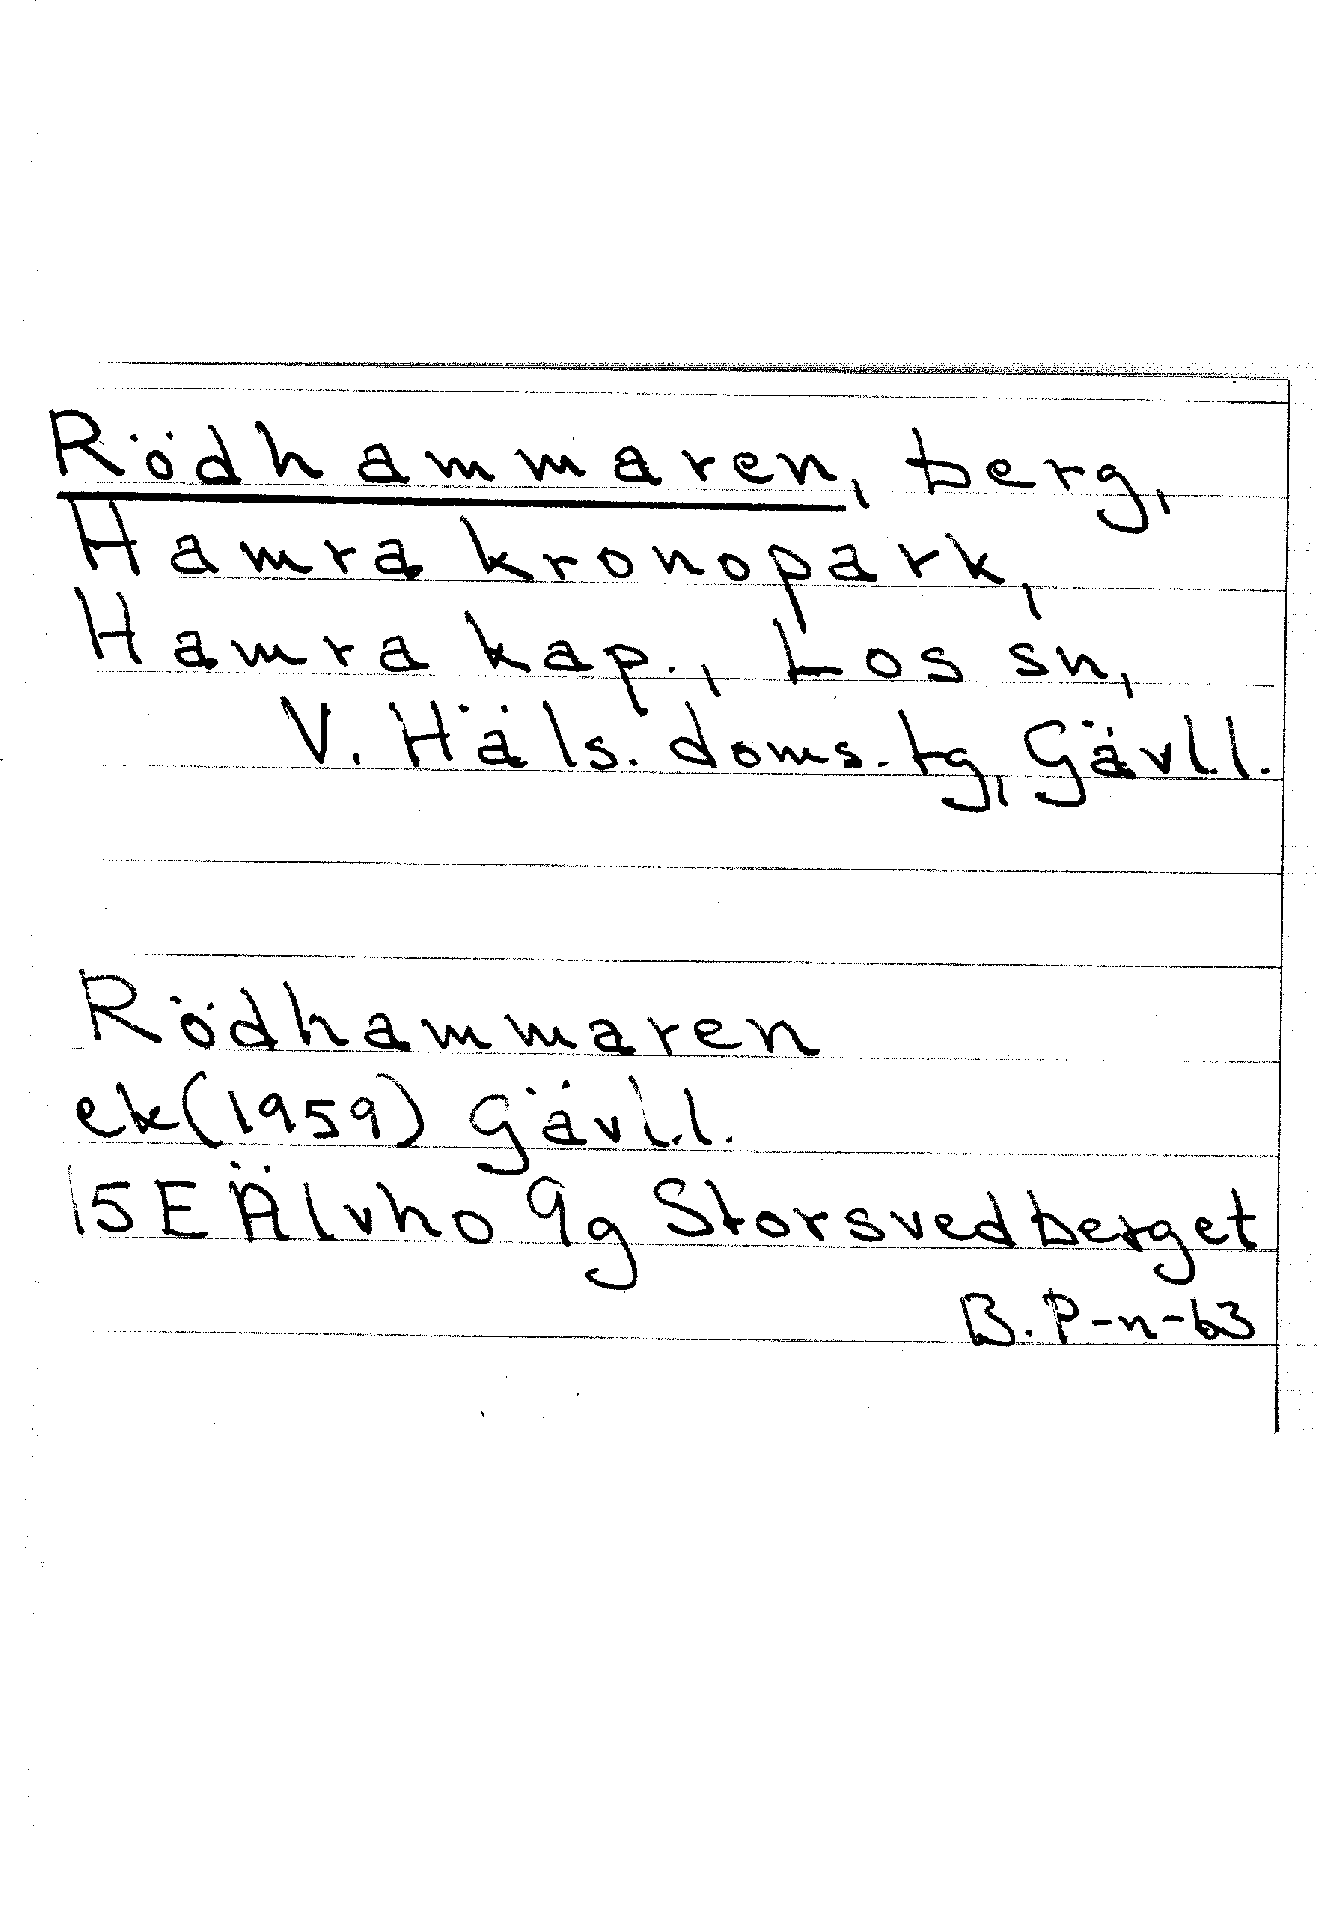 Rödhammaren, berg,
Hamra kronopark,
Hamra kap., Los sn,
V. Häls. doms. tg, Gävl.l.
Rödhammaren
ek (1959) Gävl.l.
15 E Älvho 9g Storsvedberget
B. P-n-63